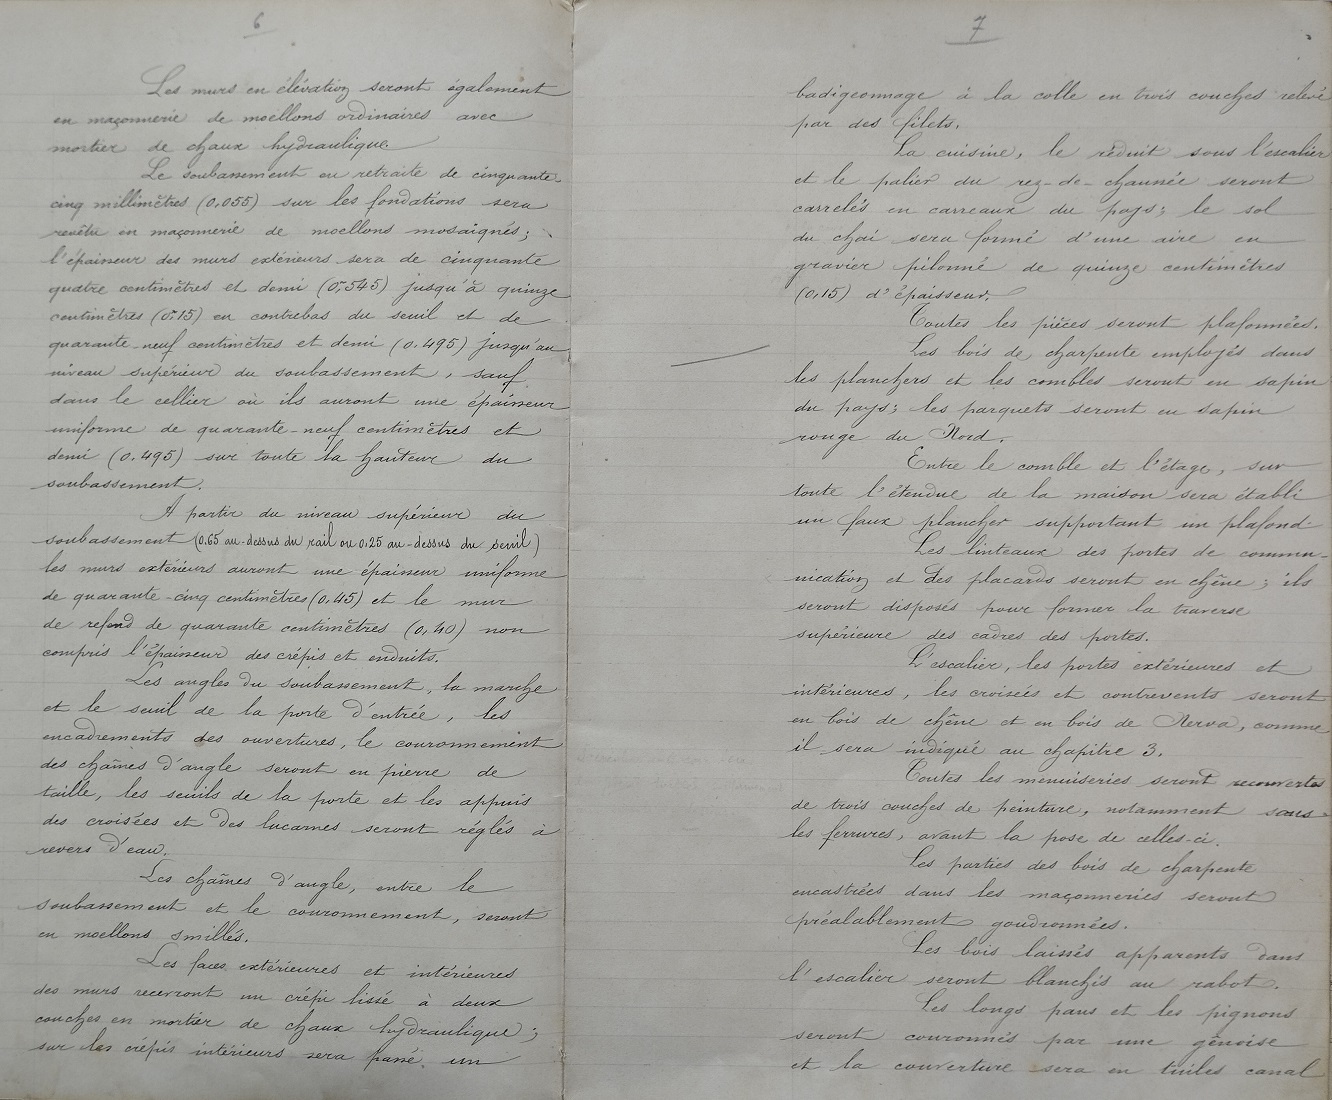 6
Les murs en élévation seront également
en maçonnerie de moellons ordinaires avec
mortier de chaux hydraulique.
Le soubassement en retraite de cinquante-
cinq millimètres (0,055) sur les fondations sera
revêtu en maçonnerie de moellons mosaïqués ;
l'épaisseur des murs extérieurs sera de cinquante
quatre centimètres et demi (0m,545) jusqu'à quinze
centimètres (0m,15) en contrebas du seuil et de
quarante-neuf centimètres et demi (0,495) jusqu'au
niveau supérieur du soubassement, sauf
dans le cellier où ils auront une épaisseur
uniforme de quarante-neuf centimètres et
demi (0,495) sur toute la hauteur du
soubassement.
A partir du niveau supérieur du
soubassement (0,65 au-dessus du rail ou 0,25 au-dessus du seuil)
les murs extérieurs auront une épaisseur uniforme
de quarante-cinq centimètres (0,45) et le mur
de refend de quarante centimètres (0,40) non
compris l'épaisseur des crépis et enduits.
Les angles du soubassement, la marche
et le seuil de la porte d'entrée, les
encadrements des ouvertures, le couronnement
des chaînes d'angle seront en pierre de
taille, les seuils de la porte et les appuis
des croisées et des lucarnes seront réglés à
revers d'eau.
Les chaînes d'angle, entre le
soubassement et le couronnement, seront
en moellons smillés.
Les faces extérieures et intérieures
des murs recevront un crépi lissé à deux
couches en mortier de chaux hydraulique ;
sur les crépis intérieurs sera passé un
7
badigeonnage à la colle en trois couches relevé
par des filets.
La cuisine, le réduit sous l'escalier
et le palier du rez-de-chaussée seront
carrelés en carreaux du pays ; le sol
du chai sera formé d'une aire en
gravier pilonné de quinze centimètres
(0,15) d'épaisseur.
Toutes les pièces seront plafonnées.
Les bois de charpente employés dans
les planchers et les combles seront en sapin
du pays ; les parquets seront en sapin
rouge du Nord.
Entre le comble et l'étage, sur
toute l'étendue de la maison sera établi
un faux plancher supportant un plafond.
Les linteaux des portes de commu-
nication et des placards seront en chêne ; ils
seront disposés pour former la traverse
supérieure des cadres des portes.
L'escalier, les portes extérieures et
intérieures, les croisées et contrevents seront
en bois de chêne et en bois de Nerva, comme
il sera indiqué au chapitre 3.
Toutes les menuiseries seront recouvertes
de trois couches de peinture, notamment sous
les ferrures, avant la pose de celles-ci.
Les parties des bois de charpente
encastrées dans les maçonneries seront
préalablement goudronnées.
Les bois laissés apparents dans
l'escalier seront blanchis au rabot.
Les longs pans et les pignons
seront couronnés par une génoise
et la couverture sera en tuiles canal